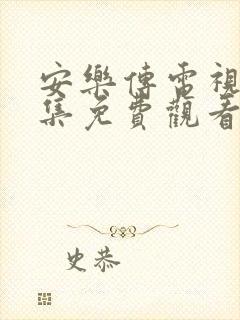 安樂傳電視
集免費觀看
史恭